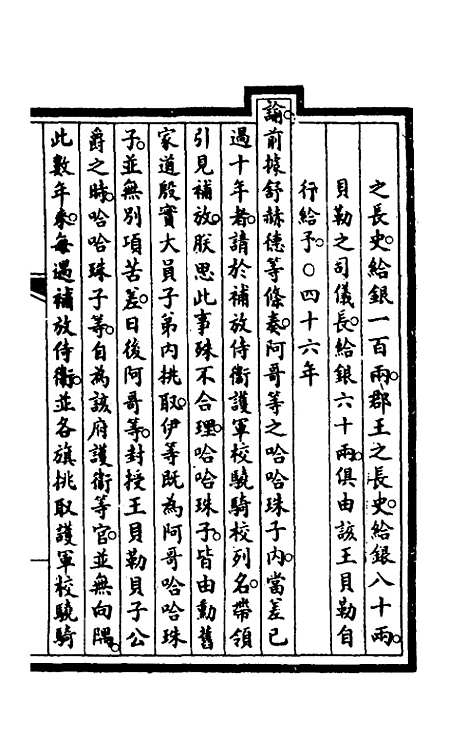 之長史。給銀一百兩。郡王之長史。給銀八十兩。
貝勒之司儀長。給銀六十兩。俱由該王貝勒自
行給予。○四十六年
諭。前據舒赫德等條奏。阿哥等之哈哈珠子內。當差已
過十年者。請於補放侍衞護軍校驍騎校列名。帶領
引見補放。朕思此事殊不合理。哈哈珠子。皆由勳舊
家道殷實大員子弟內挑取。伊等既為阿哥哈哈珠
子。並無別項苦差。日後阿哥等。封授王貝勒貝子公
爵之時。哈哈珠子等。自為該府護衞等官。並無向隅。
此數年來。每遇補放侍衞。並各旗挑取護軍校驍騎